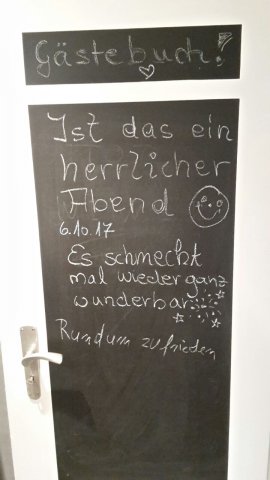 Gästebuch!
Ist das ein
herrlicher
Abend
6.10.17
Es schmeckt
mal wieder ganz
wunderbar
Rundum zufrieden